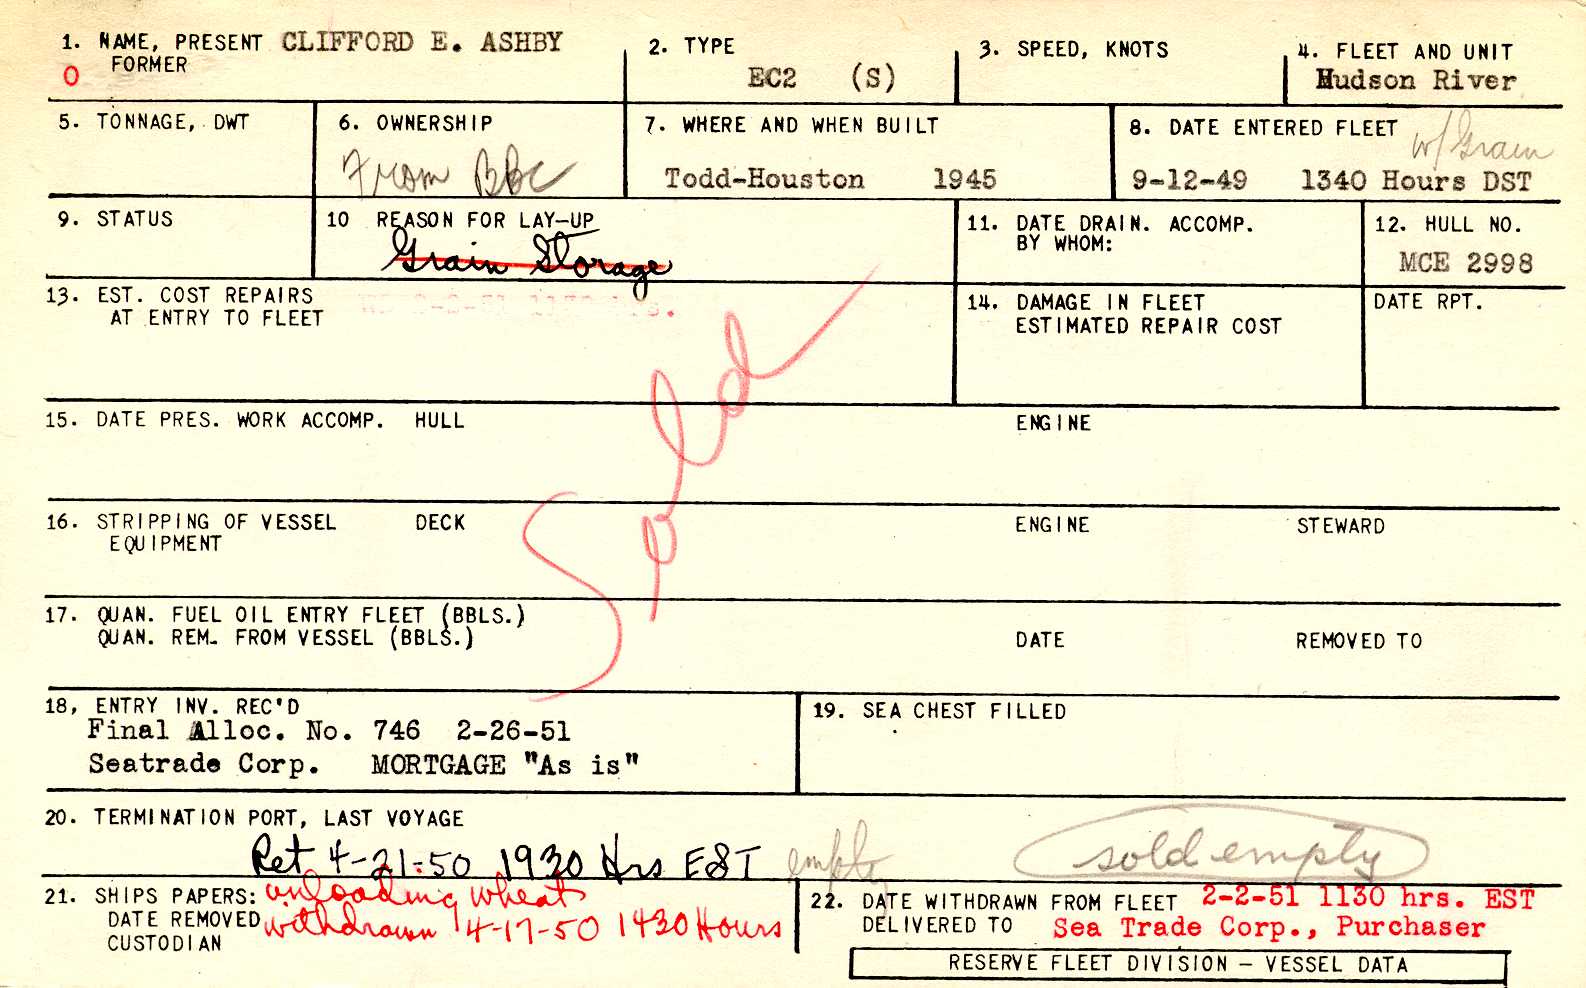 1. NAME, PRESENT CLIFFORD E. ASHBY
FORMER
O
2. TYPE
EC2 (S)
3. SPEED, KNOTS
4. FLEET AND UNIT
Hudson River
5. TONNAGE, DWT
6. OWNERSHIP
From BBC
7. WHERE AND WHEN BUILT
Todd-Houston 1945
8. DATE ENTERED FLEET w/Grain
9-12-49 1340 Hours DST
9. STATUS
10 REASON FOR LAY-UP
Grain Storage
11. DATE DRAIN. ACCOMP.
BY WHOM:
12. HULL NO.
MCE 2998
13. EST. COST REPAIRS
AT ENTRY TO FLEET
14. DAMAGE IN FLEET
ESTIMATED REPAIR COST
DATE RPT.
Sold
15. DATE PRES. WORK ACCOMP. HULL ENGINE
16. STRIPPING OF VESSEL DECK ENGINE STEWARD
EQUIPMENT
17. QUAN. FUEL OIL ENTRY FLEET (BBLS.)
QUAN. REM. FROM VESSEL (BBLS.) DATE REMOVED TO
18, ENTRY INV. REC'D
Final Alloc. No. 746 2-26-51
Seatrade Corp. MORTGAGE "As is"
19. SEA CHEST FILLED
20. TERMINATION PORT, LAST VOYAGE
Ret 4-21-50 1930 Hrs EST empty sold empty
21. SHIPS PAPERS: unloading wheat
DATE REMOVED withdrawn 4-17-50 1430 Hours
CUSTODIAN
22. DATE WITHDRAWN FROM FLEET 2-2-51 1130 hrs. EST
DELIVERED TO Sea Trade Corp., Purchaser
RESERVE FLEET DIVISION - VESSEL DATA